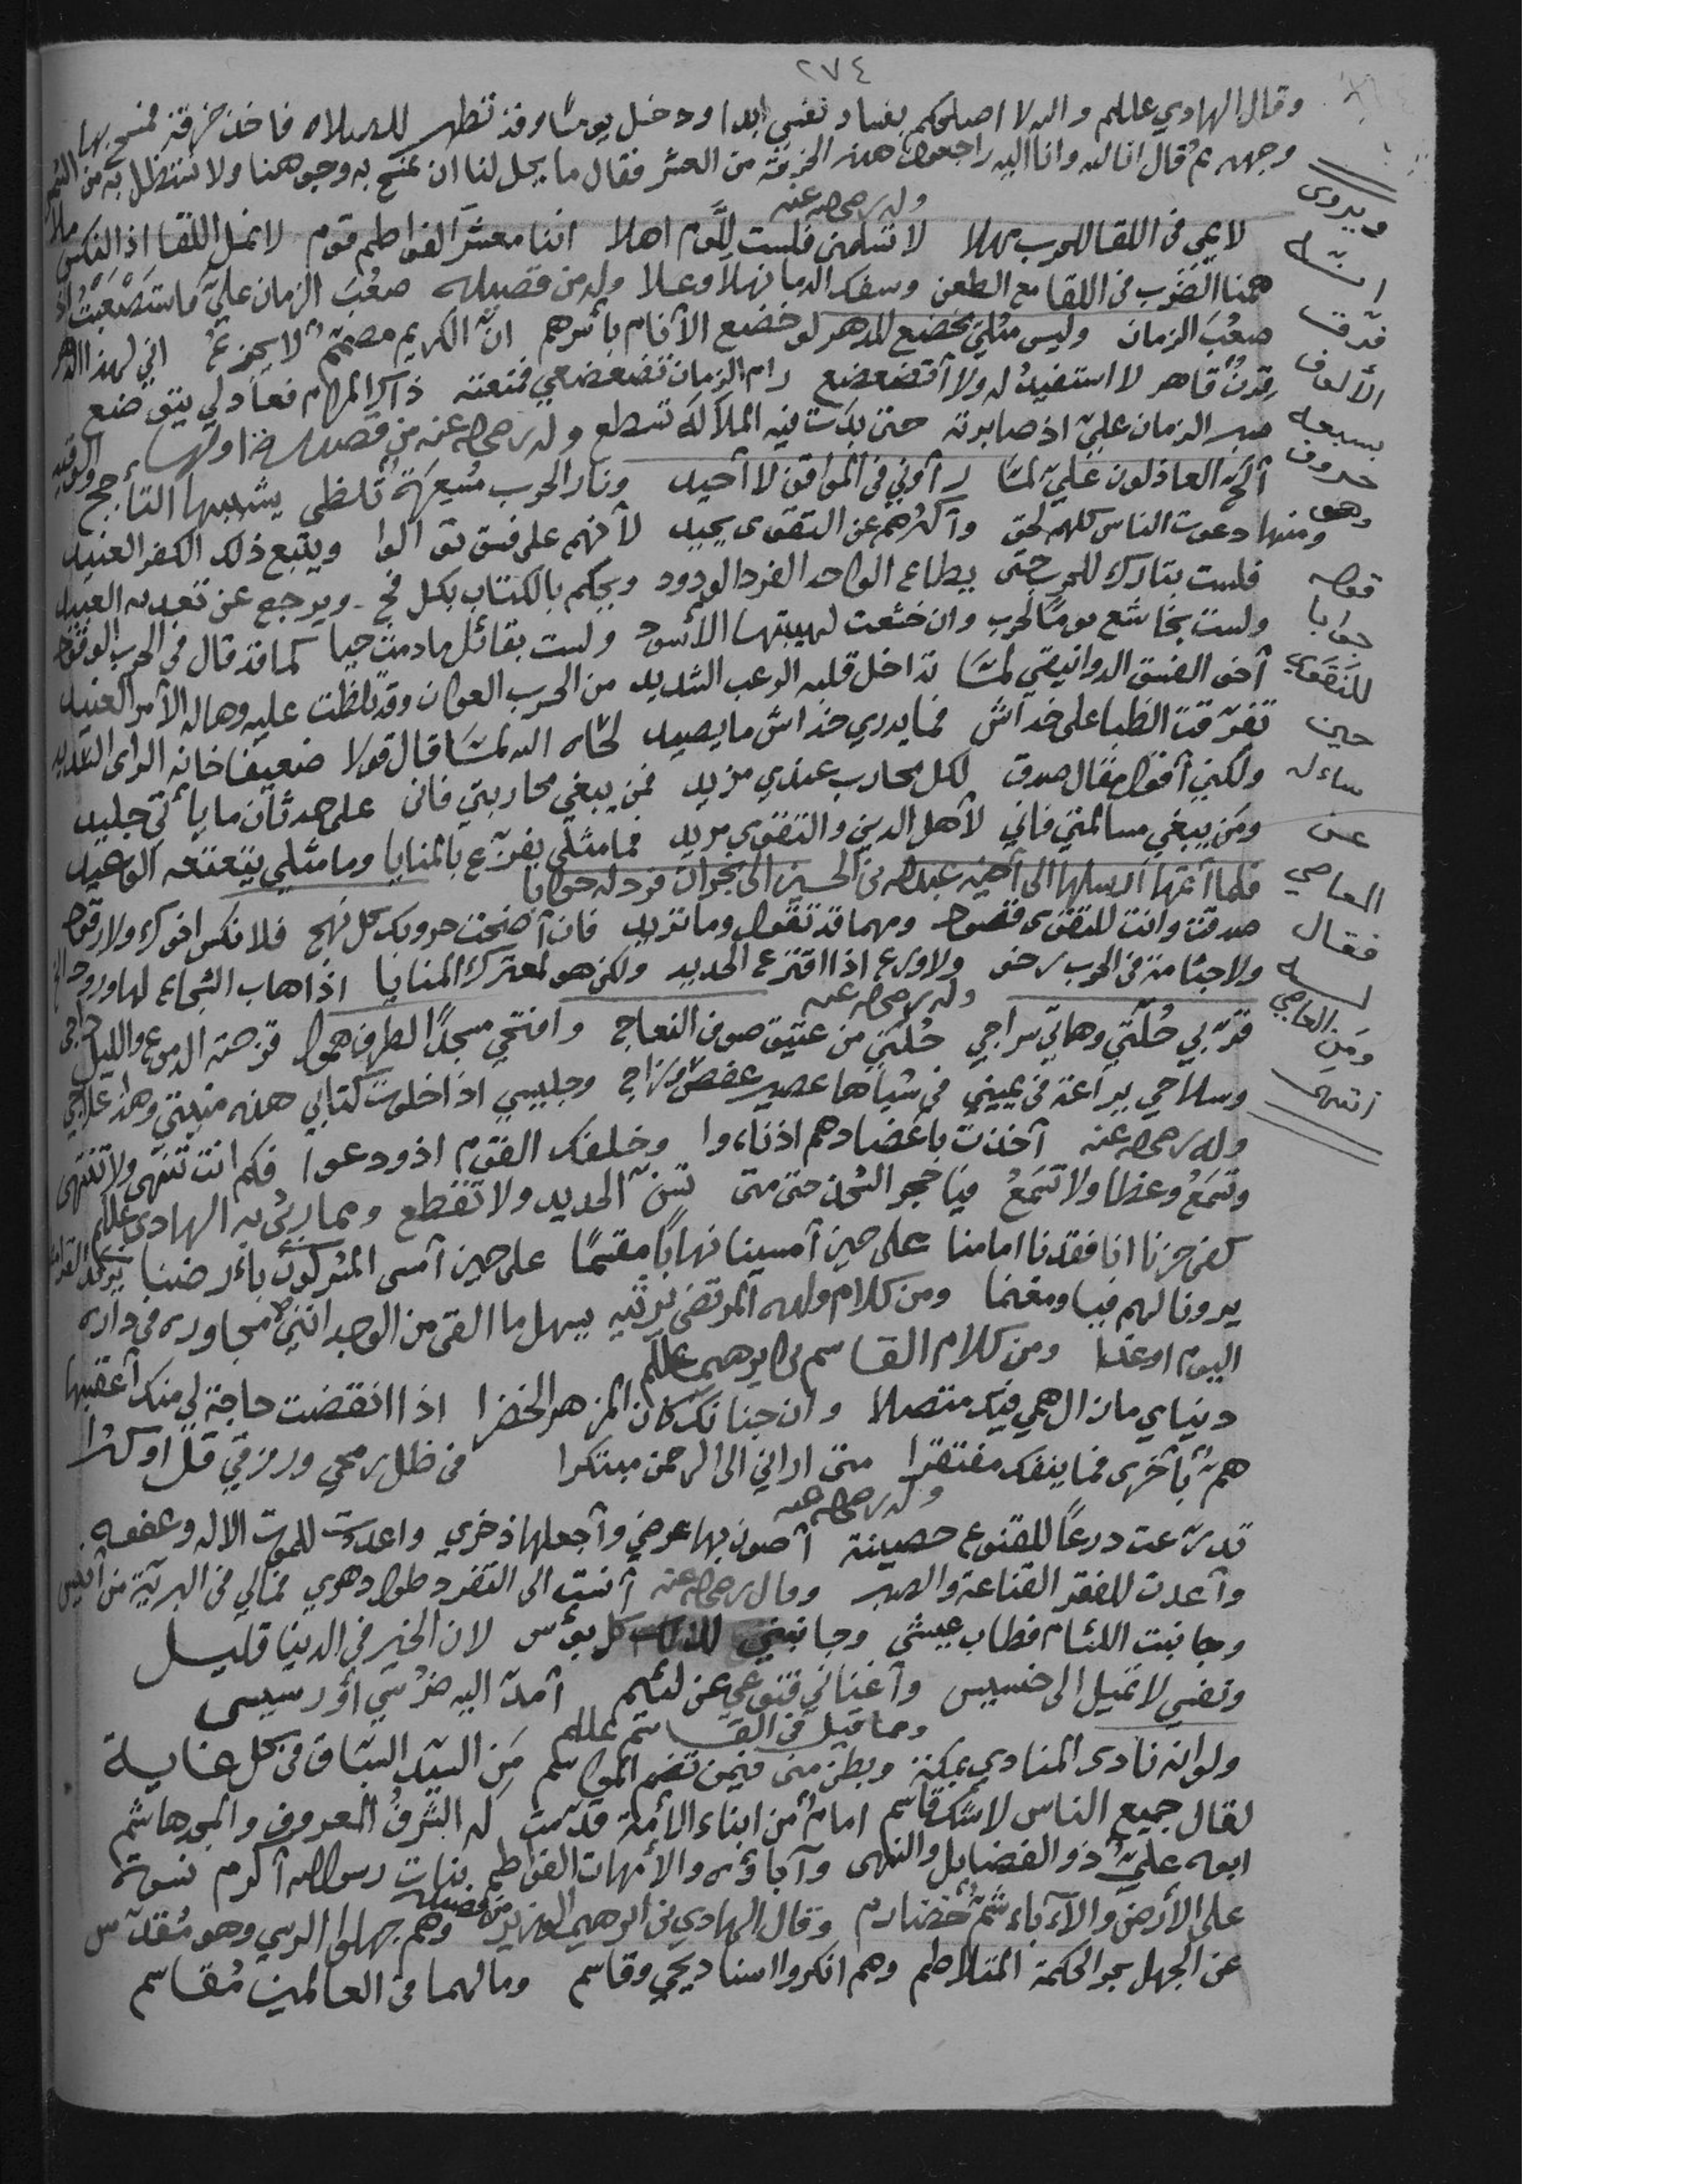 ٢٧٤
وقال الهادي عللم والله لا اصلحكم بفساد نفسي ابدا ودخل يوما وقد تطهر للصلاه فاخذ خرقة فمسح بها
وجهه ثم قال انا لله وانا اليه راجعون هذه الخرقة من العشر فقال ما يحل لنا ان نمسح به وجوهنا ولا نستظل به من الشمس
وله رضي الله عنه
لايمي في اللقا للحرب مهلا لا تسلمني فلست للّوم اهلا اننا معشر الفواطم قوم لا نمل اللقا اذا النكس ملا
همنا الضرب في اللقا مع الطعن وسفك الدما نهلا وعلا وله من قصيده صعُب الزمان عليّ فاستصعبتُ اذ
صعُب الزمان وليس مثلي يخضع للدهر لو خضع الأنام بأسرهم انّ الكريم مصمّم لا يجزعُ اني لهذا الدهر
قِرنٌ قاهر لا استفيدُ له ولا أتضعضع رام الزمان تضعضعي فمنعته ذاك المرام فعاد لي يتوضع
صبر الزمان عليّ اذ صابرته حتى بدت فيه الملالة تسطع وله رضي الله عنه من قصيدة اولها
ألحّ العاذلون عليّ لمّا رأوني في المواقف لا أحيد ونار الحرب مُسعَرةٌ تلظى يشببها التأجج والوقيد
ومنها دعوت الناس كلهم لحق وأكثرهم عن التقوى يحيد لأنهم على فسق توالوا ويتبع ذلك الكفر العنيد
فلست بتارك للحرب حتى يطاع الواحد الفرد الودود ويحكم بالكتاب بكل فج ويرجع عن تعديه العنيد
ولست بخاشع يومًا لحرب وان خشعت لهيبتها الأسود ولست بقائل ما دمت حيا كما قد قال في الحرب الوقود
أخو الفسق الدوانيقي لمّا تداخل قلبه الرعب الشديد من الحرب العوان وقد تلظت عليه وهاله الأمر العنيد
تفرّقت الظبا على خداش فما يدري خداش ما يصيد لحاه الله لمّا قال قولا ضعيفا خانه الراى السديد
ولكني أقول مقال صدق لكل محارب عندي مزيد فمن يبغي محاربتي فاني على حدثان ما يأتي جليد
ومن يبغي مسالمتي فاني لأهل الدين والتقوى مريد فما مثلي يفزّع بالمنايا وما مثلي يتعتعه الوعيد
فلما أتمها ارسلها الى أخيه عبدالله بن الحسين الى نجران فرد له جوابا
صدقت وانت للتقوى قصود ومهما قد تقول وما تزيد فان أضحت حروبك كل نهج فلا نكس اخوك ولا رقود
ولا جثامة في الحرب رخو ولا ورع اذا اقترع الحديد ولكن هو لمعترك المنايا اذا هاب الشجاع لها ورود الخ
وله رضي الله عنه
قرّبي حُلّتي وهاتي سراجي حُلّتي من عتيق صوف النعاج وافتحي مسجدًا لطرف همول قرحته الدموع والليل داجى
وسلاحي يراعة في يميني في شباها عصير عفص وزاج وجليسي اذا خلوت كتابي هذه منيتي وهذا علاجي
وله رضي الله عنه أخذت باعضادهم اذ ناءوا وخلفك القوم اذ ودعوا فكم انت تَنهى ولا تنتهى
وتُسمعُ وعظا ولا تَسمعُ فيا حجر الشحذ حتى متى تسنّ الحديد ولا تقطع ومما رثي به الهادي عللم
كفى حزنا انا فقدنا امامنا على حين أمسينا نهابًا مقسّمًا على حين أمسى المشركون بأرضنا
يرونا لهم فيا ومغنما ومن كلام ولده المرتضى يرثيه يسهل ما القى من الوجد انني مجاوره في داره
اليوم او غدا ومن كلام القاسم بن ابرهيم عللم
دنياي ما زال همي فيك متصلا وان جنانك كان المزهر الخضرا اذا انقضت حاجة لي منك أعقبها
همّ بأخرى فما ينفك مفتقرا متى اراني الى الرحمن مبتكرا في ظل رمحي ورزقي قلّ او كثرا
وله رضي الله عنه
تدرّعت درعًا للقنوع حصينة أصون بها عرضي وأجعلها ذخري واعددت للموت الاله وعفوه
وأعددت للفقر القناعة والصبر وقال رضي الله عنه أنست الى التفرد طول دهري فمالي في البرية من أنيس
وجانبت اللئام فطاب عيشي وجانبني لذلك كل بؤس لان الخير في الدنيا قليل
ونفسي لا تميل الى خسيس وأغناني قنوعي عن لئيم أمدّ اليه ضرسي أو رسيسى
ومما قيل في القاسم عللم
ولو انه نادى المنادي بمكة وبطن منى فيمن تضم المواسم مَن السيد السباق في كل غاية
لقال جميع الناس لا شك قاسم امامٌ من ابناء الأئمة قدّمت له الشرفُ المعروف والمجد هاشم
ابوه عليٌّ ذو الفضايل والنهى وآباؤه والأمهات الفواطم بنات رسول الله أكرم نسوة
على الأرض والآباء شمٌّ خضارم وقال الهادي بن ابرهيم الوزير من قصيده وهم جهلوا الرسي وهو مُقدّس
عن الجهل بحر الحكمة المتلاطم وهم انكروا اسناد يحيي وقاسم وما لهما في العالمين مُقاسم
ويروى
انه
فرّق
الألعاف
بسبعه
حروف
وهو
قوله
جوابا
للنقوي
حين
ساءله
عن
المعاصي
فقال
له
ومَن العاصي
انتهى